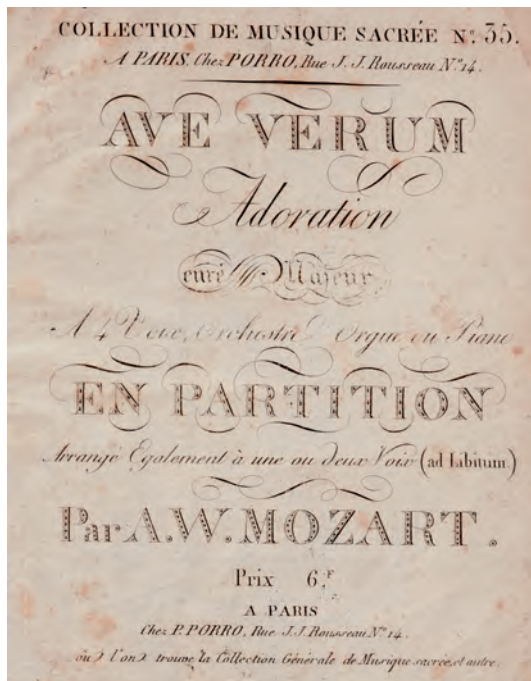 COLLECTION DE MUSIQUE SACRÉE N.º 35.
A PARIS, Chez PORRO, Rue J. J. Rousseau N.º 14.
AVE VERUM
Adoration
en ré Majeur
A 4 Voix, Orchestre Orgue ou Piano
EN PARTITION
Arrangé Egalement à une ou deux Voix (ad Libitum)
Par A. W. MOZART.
Prix 6.F
A PARIS
Chez P. PORRO, Rue J. J. Rousseau N.º 14.
où l'on trouve la Collection Générale de Musique sacrée, et autre.